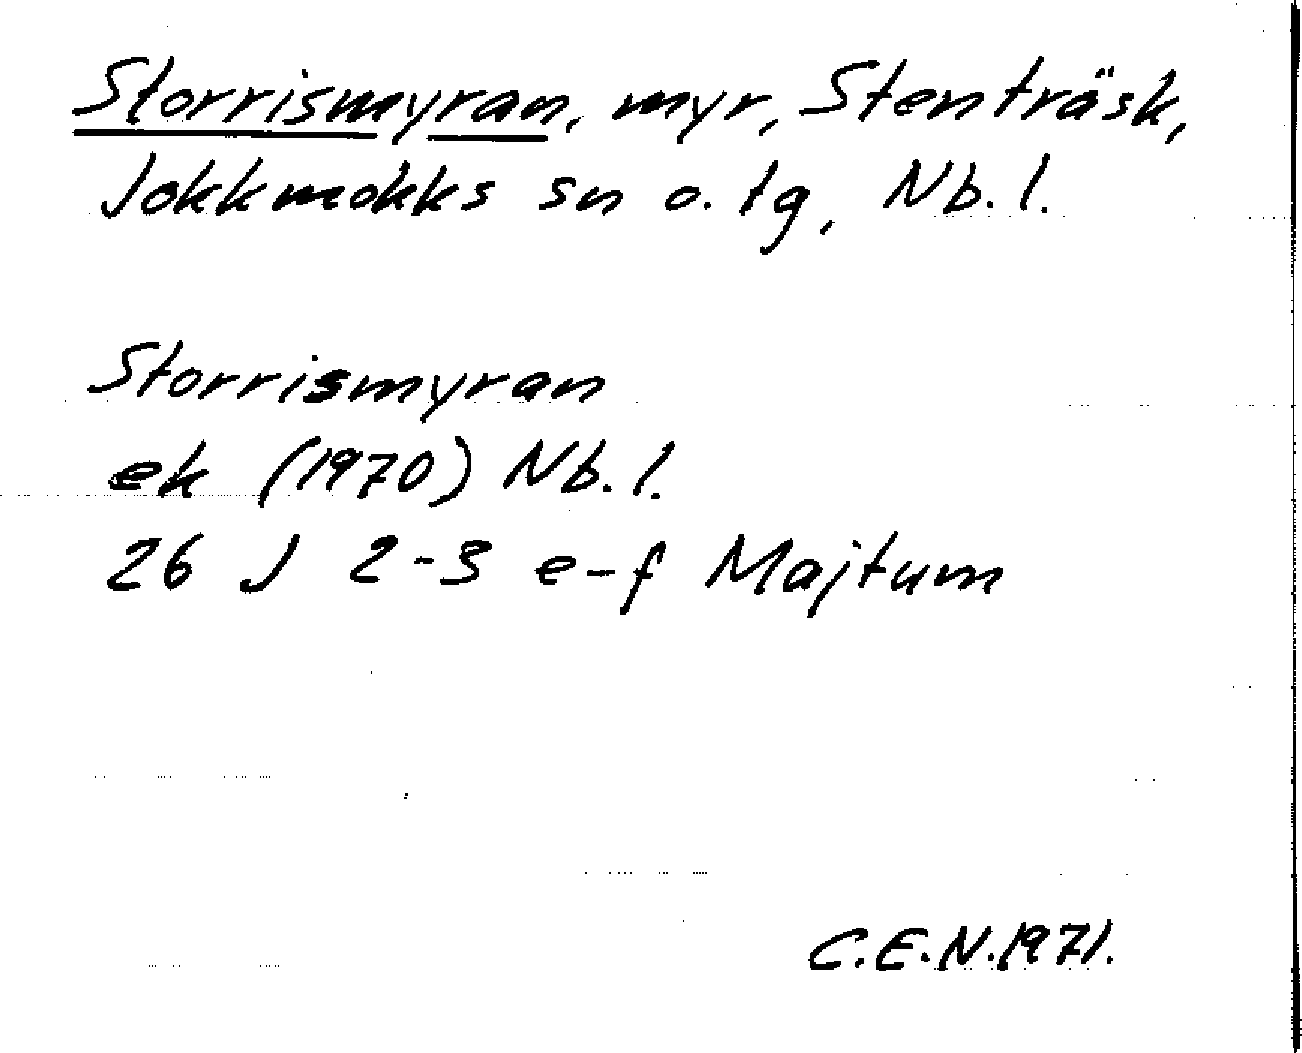 Storrismyran, myr, Stenträsk,
Jokkmokks sn o. tg, Nb. l.
Storrismyran
ek (1970) Nb. l.
26 J 2-3 e-f Majtum
C.E.N. 1971.